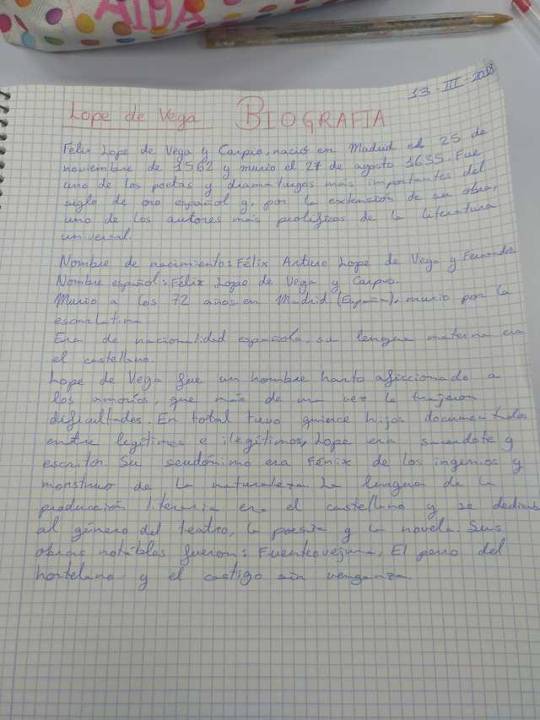 AIDA
13-III-2018
Lope de Vega BIOGRAFIA
Félix Lope de Vega y Carpio, nació en Madrid el 25 de
noviembre de 1562 y murio el 27 de agosto 1635. Fue
uno de los poetas y dramaturgos más importantes del
siglo de oro español y, por la extensión de su obra,
uno de los autores más prolíficos de la literatura
universal.
Nombre de nacimiento: Félix Arturo Lope de Vega y Fernandez
Nombre español: Félix Lope de Vega y Carpio.
Murio a los 72 años en Madrid (España), murio por la
escarlatina
Era de nacionalidad española, su lengua materna era
el castellano.
Lope de Vega fue un hombre harto aficcionado a
los amoríos, que más de una vez le trajeron
dificultades. En total tuvo quince hijos documentados
entre legítimos e ilegítimos, Lope era sacerdote y
escritor. Su seudónimo era Fénix de los ingenios y
monstruo de la naturaleza. La lengua de la
producción literaria era el castellano y se dedicaba
al género del teatro, la poesía y la novela. Sus
obras notables fueron: Fuenteovejuna, El perro del
hortelano y el castigo sin venganza